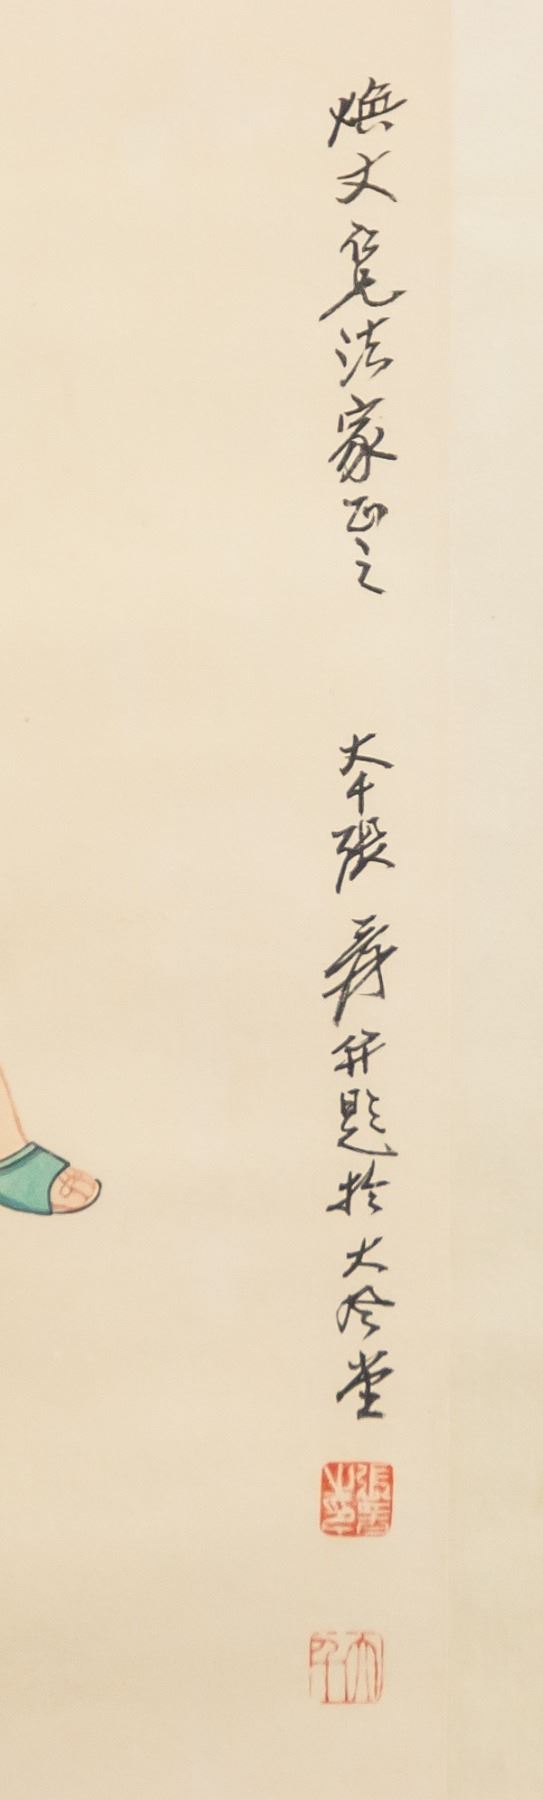 煥文仁兄法家正之
大千張爰并題於大風堂